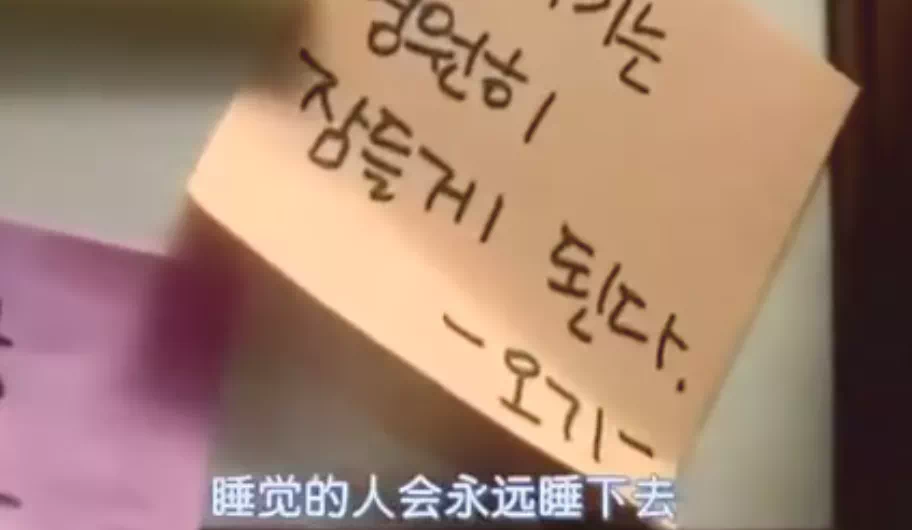 기는
영원히
잠들게 된다.
-오기-
睡觉的人会永远睡下去